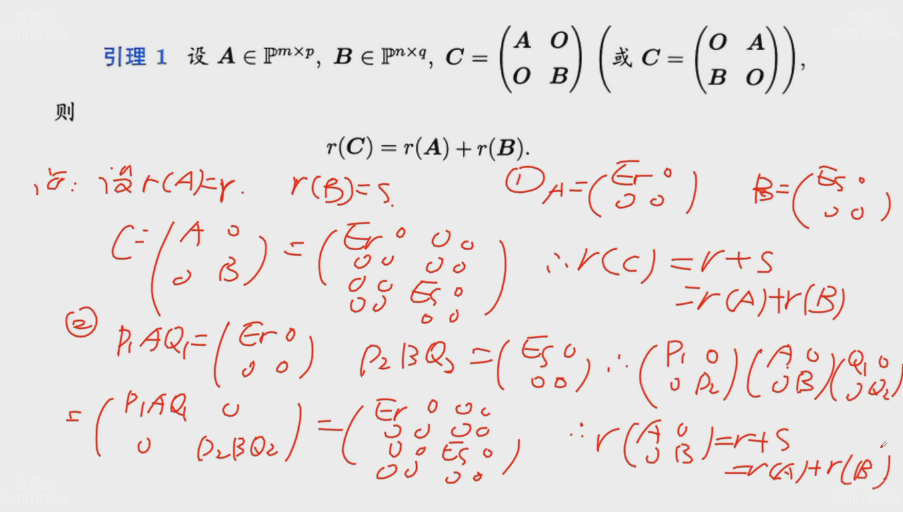 引理 1 设 A ∈ ℙ^{m×p}, B ∈ ℙ^{n×q}, C = \begin{pmatrix} A & O \\ O & B \end{pmatrix} (或 C = \begin{pmatrix} O & A \\ B & O \end{pmatrix}),
则
r(C) = r(A) + r(B).
证: 设 r(A)=r. r(B)=s. ① A = \begin{pmatrix} Er & 0 \\ 0 & 0 \end{pmatrix} B = \begin{pmatrix} Es & 0 \\ 0 & 0 \end{pmatrix}
C = \begin{pmatrix} A & 0 \\ 0 & B \end{pmatrix} = \begin{pmatrix} Er & 0 & 0 & 0 \\ 0 & 0 & 0 & 0 \\ 0 & 0 & Es & 0 \\ 0 & 0 & 0 & 0 \end{pmatrix} ∴ r(C) = r+s
= r(A)+r(B)
② P₁AQ₁ = \begin{pmatrix} Er & 0 \\ 0 & 0 \end{pmatrix} P₂BQ₂ = \begin{pmatrix} Es & 0 \\ 0 & 0 \end{pmatrix} ∴ \begin{pmatrix} P₁ & 0 \\ 0 & P₂ \end{pmatrix} \begin{pmatrix} A & 0 \\ 0 & B \end{pmatrix} \begin{pmatrix} Q₁ & 0 \\ 0 & Q₂ \end{pmatrix}
= \begin{pmatrix} P₁AQ₁ & 0 \\ 0 & P₂BQ₂ \end{pmatrix} = \begin{pmatrix} Er & 0 & 0 & 0 \\ 0 & 0 & 0 & 0 \\ 0 & 0 & Es & 0 \\ 0 & 0 & 0 & 0 \end{pmatrix} ∴ r\begin{pmatrix} A & 0 \\ 0 & B \end{pmatrix} = r+s
= r(A)+r(B)